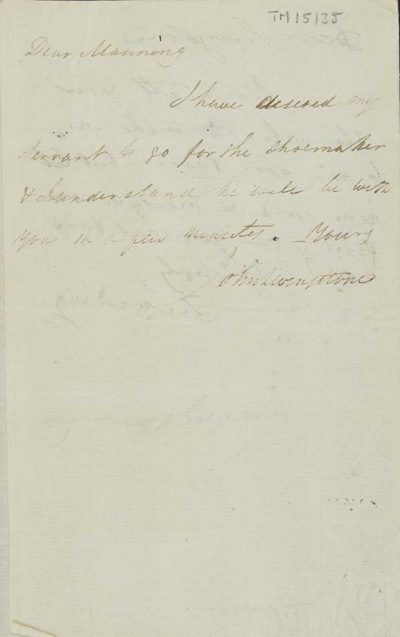 TM/5/35
Dear Manning
I have desired my
servant to go for the Shoemaker
& I understand he will be with
you in a few minutes. Yours
John Livingstone